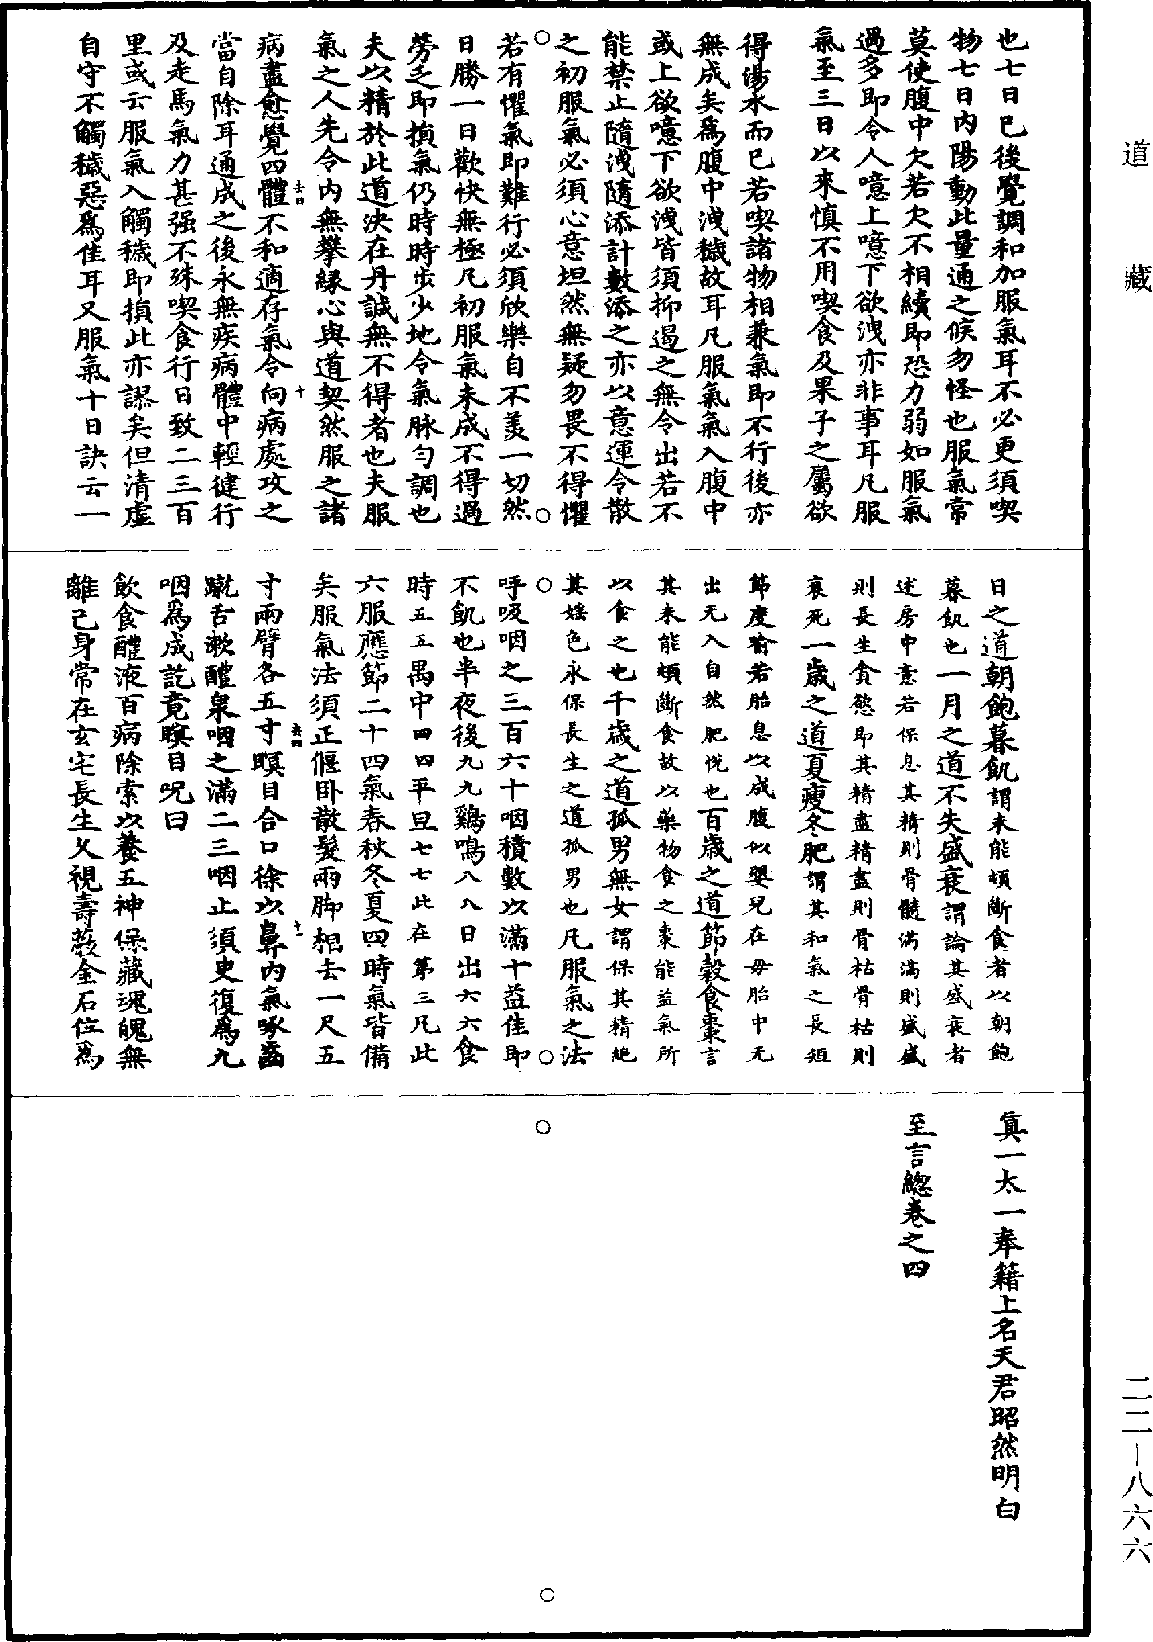 道藏
二二—八六六
也七日已後覺調和加服氣耳不必更須喫
物七日內陽動此量通之候勿怪也服氣常
莫使腹中欠若欠不相續即恐力弱如服氣
過多即令人噫上噫下欲洩亦非事耳凡服
氣至三日以來慎不用喫食及果子之屬欲
得湯水而已若喫諸物相兼氣即不行後亦
無成矣為腹中洩穢故耳凡服氣氣入腹中
或上欲噫下欲洩皆須抑遏之無令出若不
能禁止隨洩隨添計數添之亦以意運令散
之初服氣必須心意坦然無疑勿畏不得懼
若有懼氣即難行必須欣樂自不羨一切然
日勝一日歡快無極凡初服氣未成不得過
勞乏即損氣仍時時步少地令氣脉勻調也
夫以精於此道決在丹誠無不得者也夫服
氣之人先令內無攀緣心與道契然服之諸
病盡愈覺四體不和適存氣令向病處攻之
去四 十
當自除耳通成之後永無疾病體中輕健行
及走馬氣力甚强不殊喫食行日致二三百
里或云服氣入觸穢即損此亦謬矣但清虛
自守不觸穢惡為佳耳又服氣十日訣云一
日之道朝飽暮飢謂未能頓斷食者以朝飽
暮飢也一月之道不失盛衰謂論其盛衰者
述房中意若保息其精則骨髓滿滿則盛盛
則長生貪慾即其精盡精盡則骨枯骨枯則
衰死一歲之道夏瘦冬肥謂其和氣之長短
節度喻若胎息以成腹似嬰兒在母胎中无
出无入自然肥悅也百歲之道節穀食棗言
其未能頓斷食故以藥物食之棗能益氣所
以食之也千歲之道孤男無女謂保其精絕
其婬色永保長生之道孤男也凡服氣之法
呼吸咽之三百六十咽積數以滿十益佳即
不飢也半夜後九九鷄鳴八八日出六六食
時五五禺中四四平旦七七此在第三凡此
六服應節二十四氣春秋冬夏四時氣皆備
矣服氣法須正偃卧散髮兩脚相去一尺五
寸兩臂各五寸瞑目合口徐以鼻內氣啄齒
去四 十一
蹴舌漱醴泉咽之滿二三咽止須臾復為九
咽為成訖竟瞑目呪曰
飲食醴液百病除索以養五神保藏魂魄無
離己身常在玄宅長生久視壽蔽金石位為
真一太一奉籍上名天君昭然明白
至言總卷之四